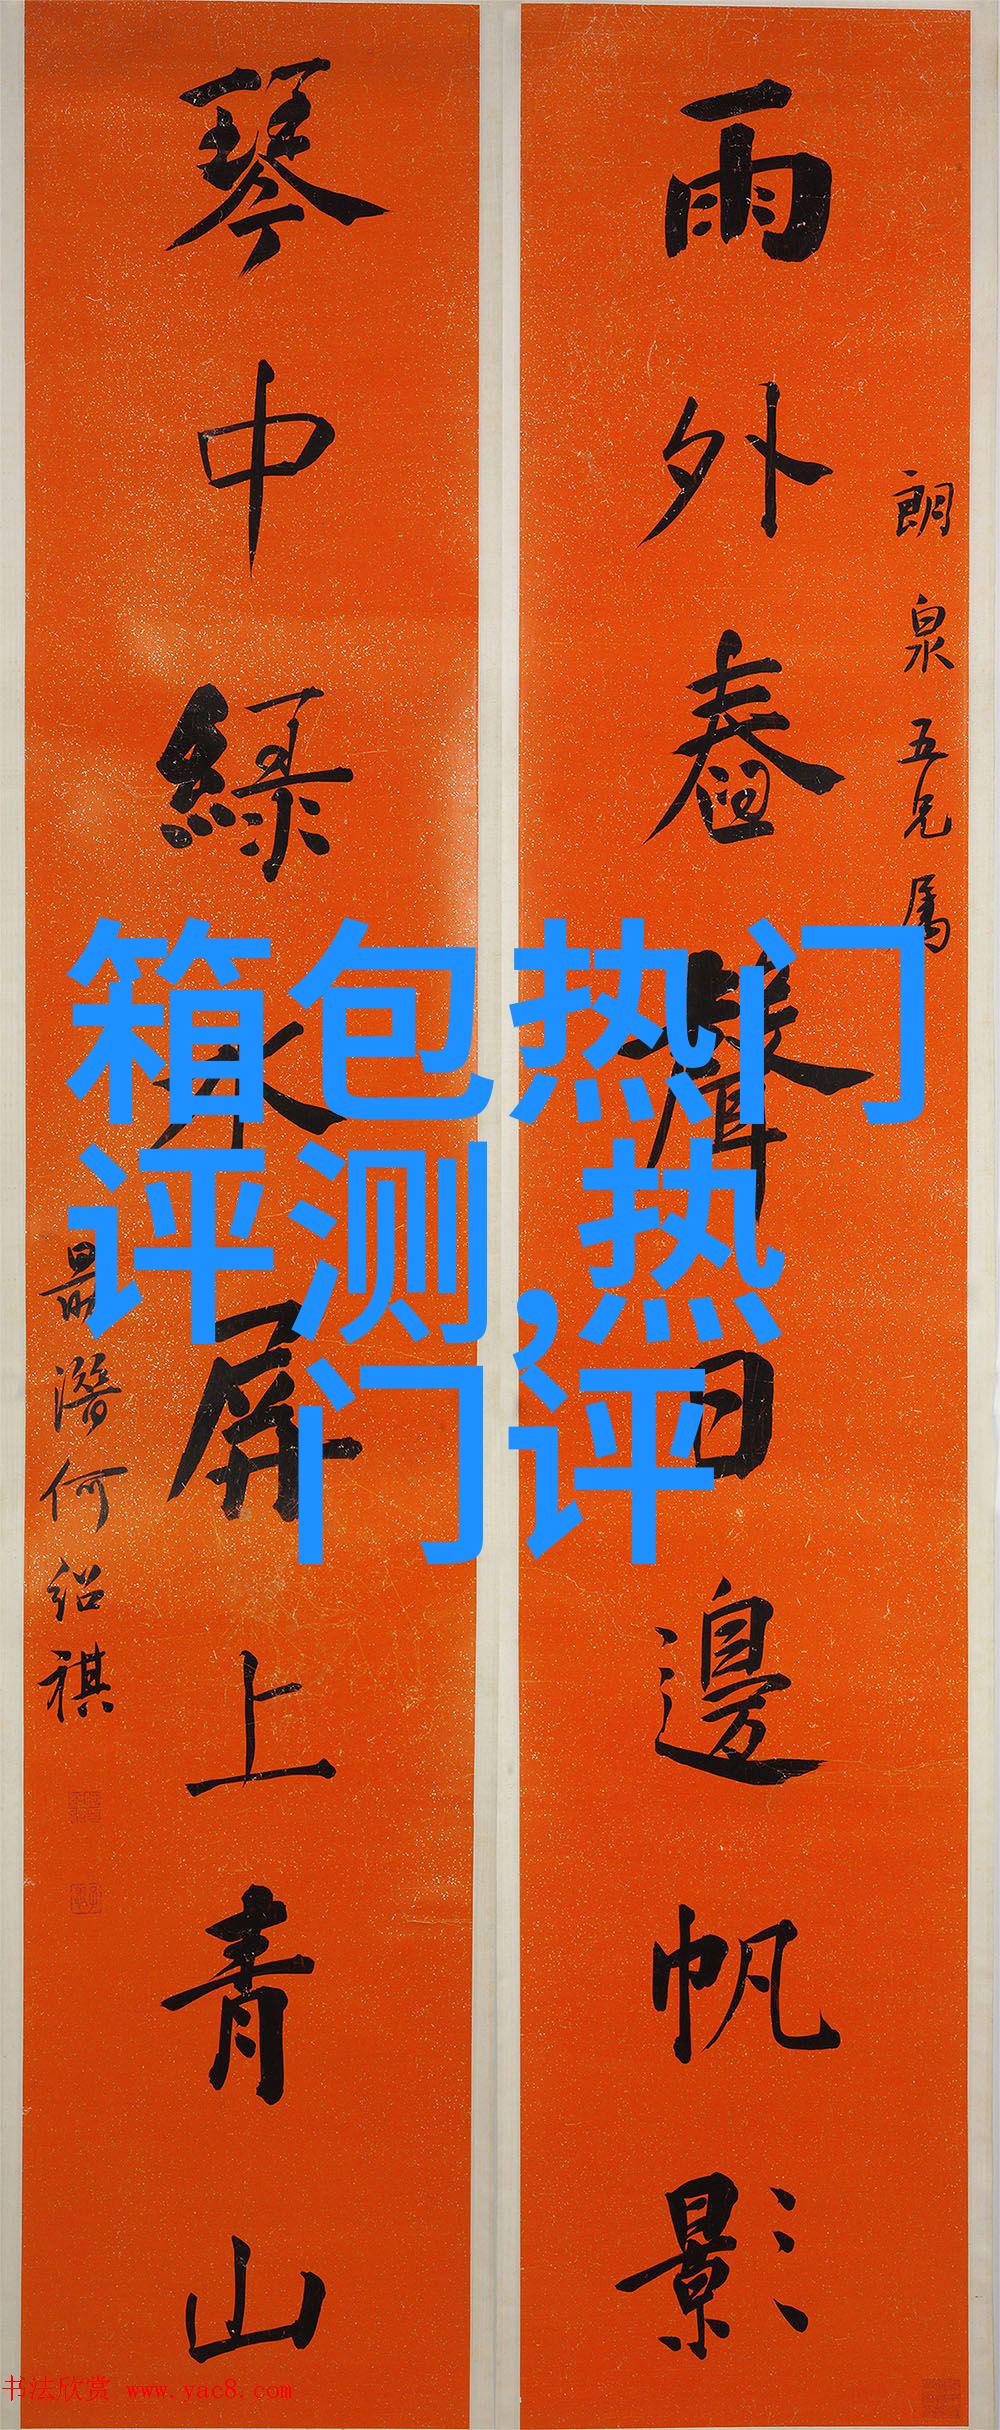 朗泉五兄属
雨外舂聲日邊帆影
琴中綠水屏上青山
勗潛何紹祺
箱包热门
评测,热
门评
书法欣赏 www.yac8.com